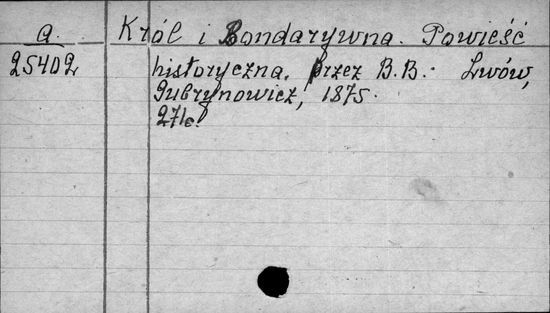 a. Król i Bondarywna. Powieść
25402 historyczna, przez B.B. Lwów,
Gubrynowicz, 1875.
271c.